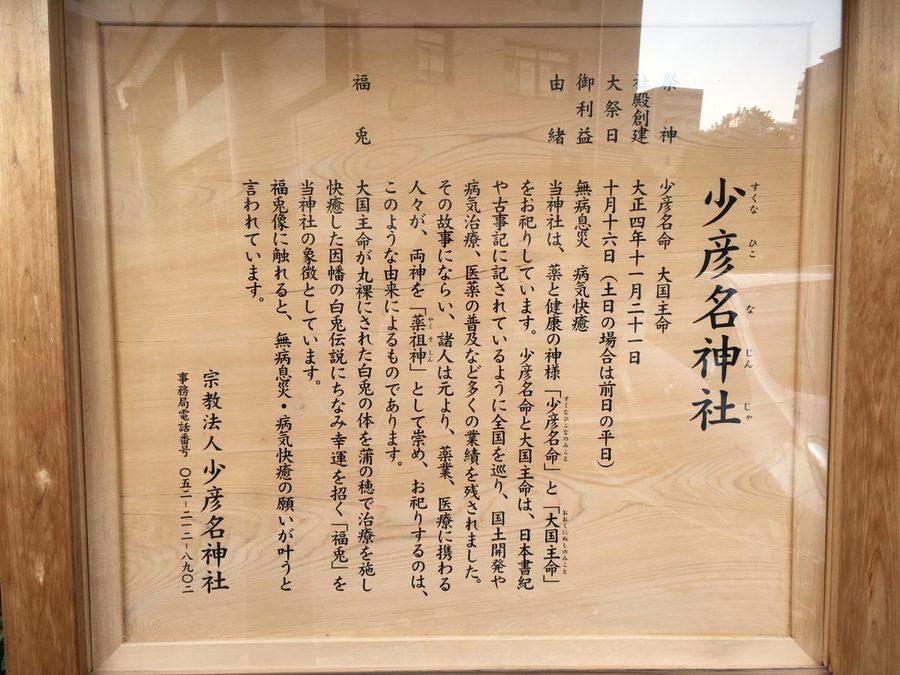 少彦名神社
すくな ひこ な じん じゃ
祭神 少彦名命 大国主命
社殿創建 大正四年十一月二十一日
大祭日 十月十六日（土日の場合は前日の平日）
御利益 無病息災 病気快癒
由緒 当神社は、薬と健康の神様「少彦名命」と「大国主命」
すくなひこなのみこと おおくにぬしのみこと
をお祀りしています。少彦名命と大国主命は、日本書紀
や古事記に記されているように全国を巡り、国土開発や
病気治療、医薬の普及など多くの業績を残されました。
その故事にならい、諸人は元より、薬業、医療に携わる
人々が、両神を「薬祖神」として崇め、お祀りするのは、
やく そ しん
このような由来によるものであります。
福兎 大国主命が丸裸にされた白兎の体を蒲の穂で治療を施し
快癒した因幡の白兎伝説にちなみ幸運を招く「福兎」を
当神社の象徴としています。
福兎像に触れると、無病息災・病気快癒の願いが叶うと
言われています。
宗教法人 少彦名神社
事務局電話番号 〇五二－二一二－八九〇二